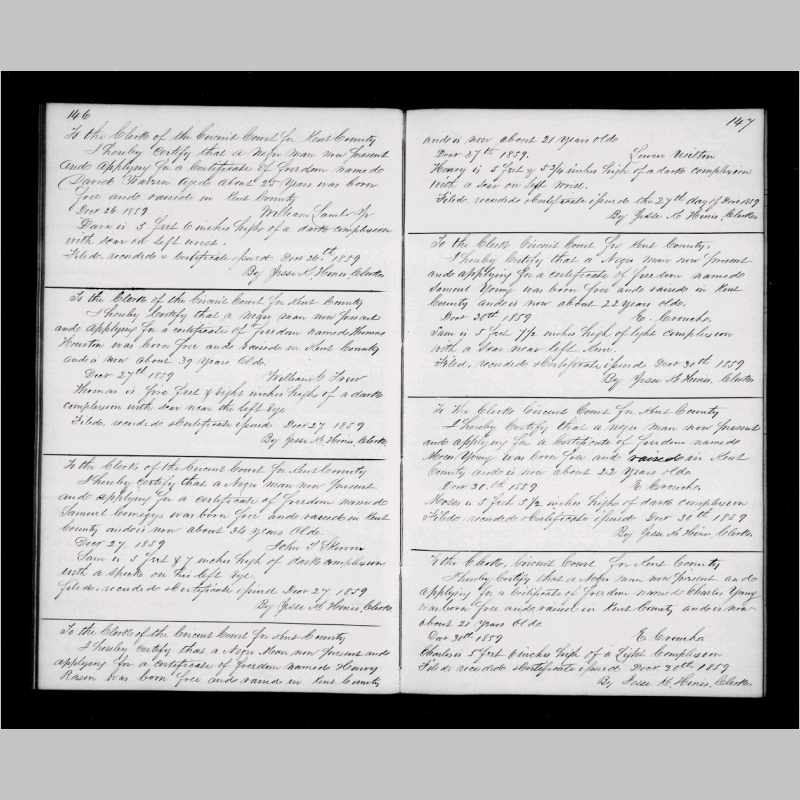 146
To the Clerk of the Circuit Court for Kent County
I hereby certify that a Negro man now present
and applying for a certificate of freedom named
David Warren aged about 25 years was born
free and raised in Kent County
Decr 26 1859 William Lamb Jr
David is 5 feet 6 inches high of a dark complexion
with scar on left
Filed, recorded & Certificate issued Decr 26th 1859
By Jesse K. Hines, Clerk
To the Clerk of the Circuit Court for Kent County
I hereby certify that a Negro man now present
and applying for a certificate of freedom named Thomas
Houston was born free and raised in Kent County
and is now about 39 years old.
Decr 27th 1859 William C
Thomas is five feet & eight inches high of a dark
complexion with scar near the left eye
Filed, recorded & Certificate issued Decr 27 1859
By Jesse K. Hines, Clerk
To the Clerk of the Circuit Court for Kent County
I hereby certify that a Negro man now present
and applying for a certificate of freedom named
Samuel Comegys was born free and raised in Kent
County and is now about 34 years old.
Decr 27 1859 John T Skirven
Sam is 5 feet & 7 inches high of dark complexion
with a on his left eye
filed, recorded & Certificate issued Decr 27 1859
By Jesse K. Hines, Clerk
To the Clerk of the Circuit Court for Kent County
I hereby certify that a Negro Man now present and
applying for a certificate of freedom named Henry
Rasin was born free and raised in Kent County
147
and is now about 21 years old
Decr 27th 1859.
Henry is 5 feet & 5 3/4 inches high of a dark complexion
with a scar on left wrist.
Filed, recorded & Certificate issued the 27th day of Decr 1859
By Jesse K. Hines, Clerk
To the Clerk Circuit Court for Kent County.
I hereby Certify that a Negro man now present
and applying for a certificate of freedom named
Samuel Young was born free and raised in Kent
County and is now about 22 years old.
Decr 30th 1859 E. Crouch
Sam is 5 feet 7 1/2 inches high of light complexion
with a scar near left
Filed, recorded & Certificate issued Decr 30th 1859
By Jesse K. Hines, Clerk
To the Clerk Circuit Court for Kent County
I hereby Certify that a negro man now present
and applying for a Certificate of freedom named
Moses Young was born free and raised in Kent
County and is now about 22 years old
Decr 30th 1859 E Crouch
Moses is 5 feet 5 1/2 inches high of dark complexion
Filed, recorded & Certificate issued Decr 30th 1859
By Jesse K. Hines, Clerk
To the Clerk, Circuit Court for Kent County
I hereby Certify that a Negro man now present and
applying for a Certificate of freedom named Charles Young
was born free and raised in Kent County and is now
about 21 years Old.
Decr 30th 1859 E. Crouch
Charles is 5 feet 6 inches high of a Light Complexion
Filed, recorded & Certificate issued, Decr 30th 1859
By Jesse K. Hines, Clerk